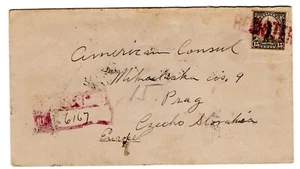 15 15
American Consul
cis. 9
15
Prag
6167
Czecho Slovakia
Europe